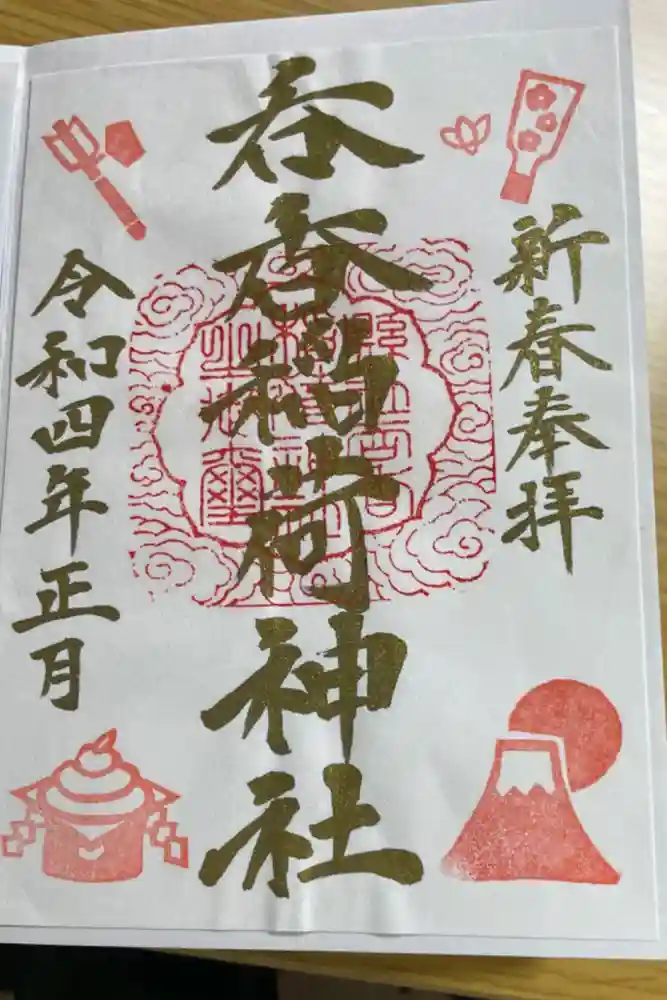 新春奉拝
呑香稲荷神社
令和四年正月